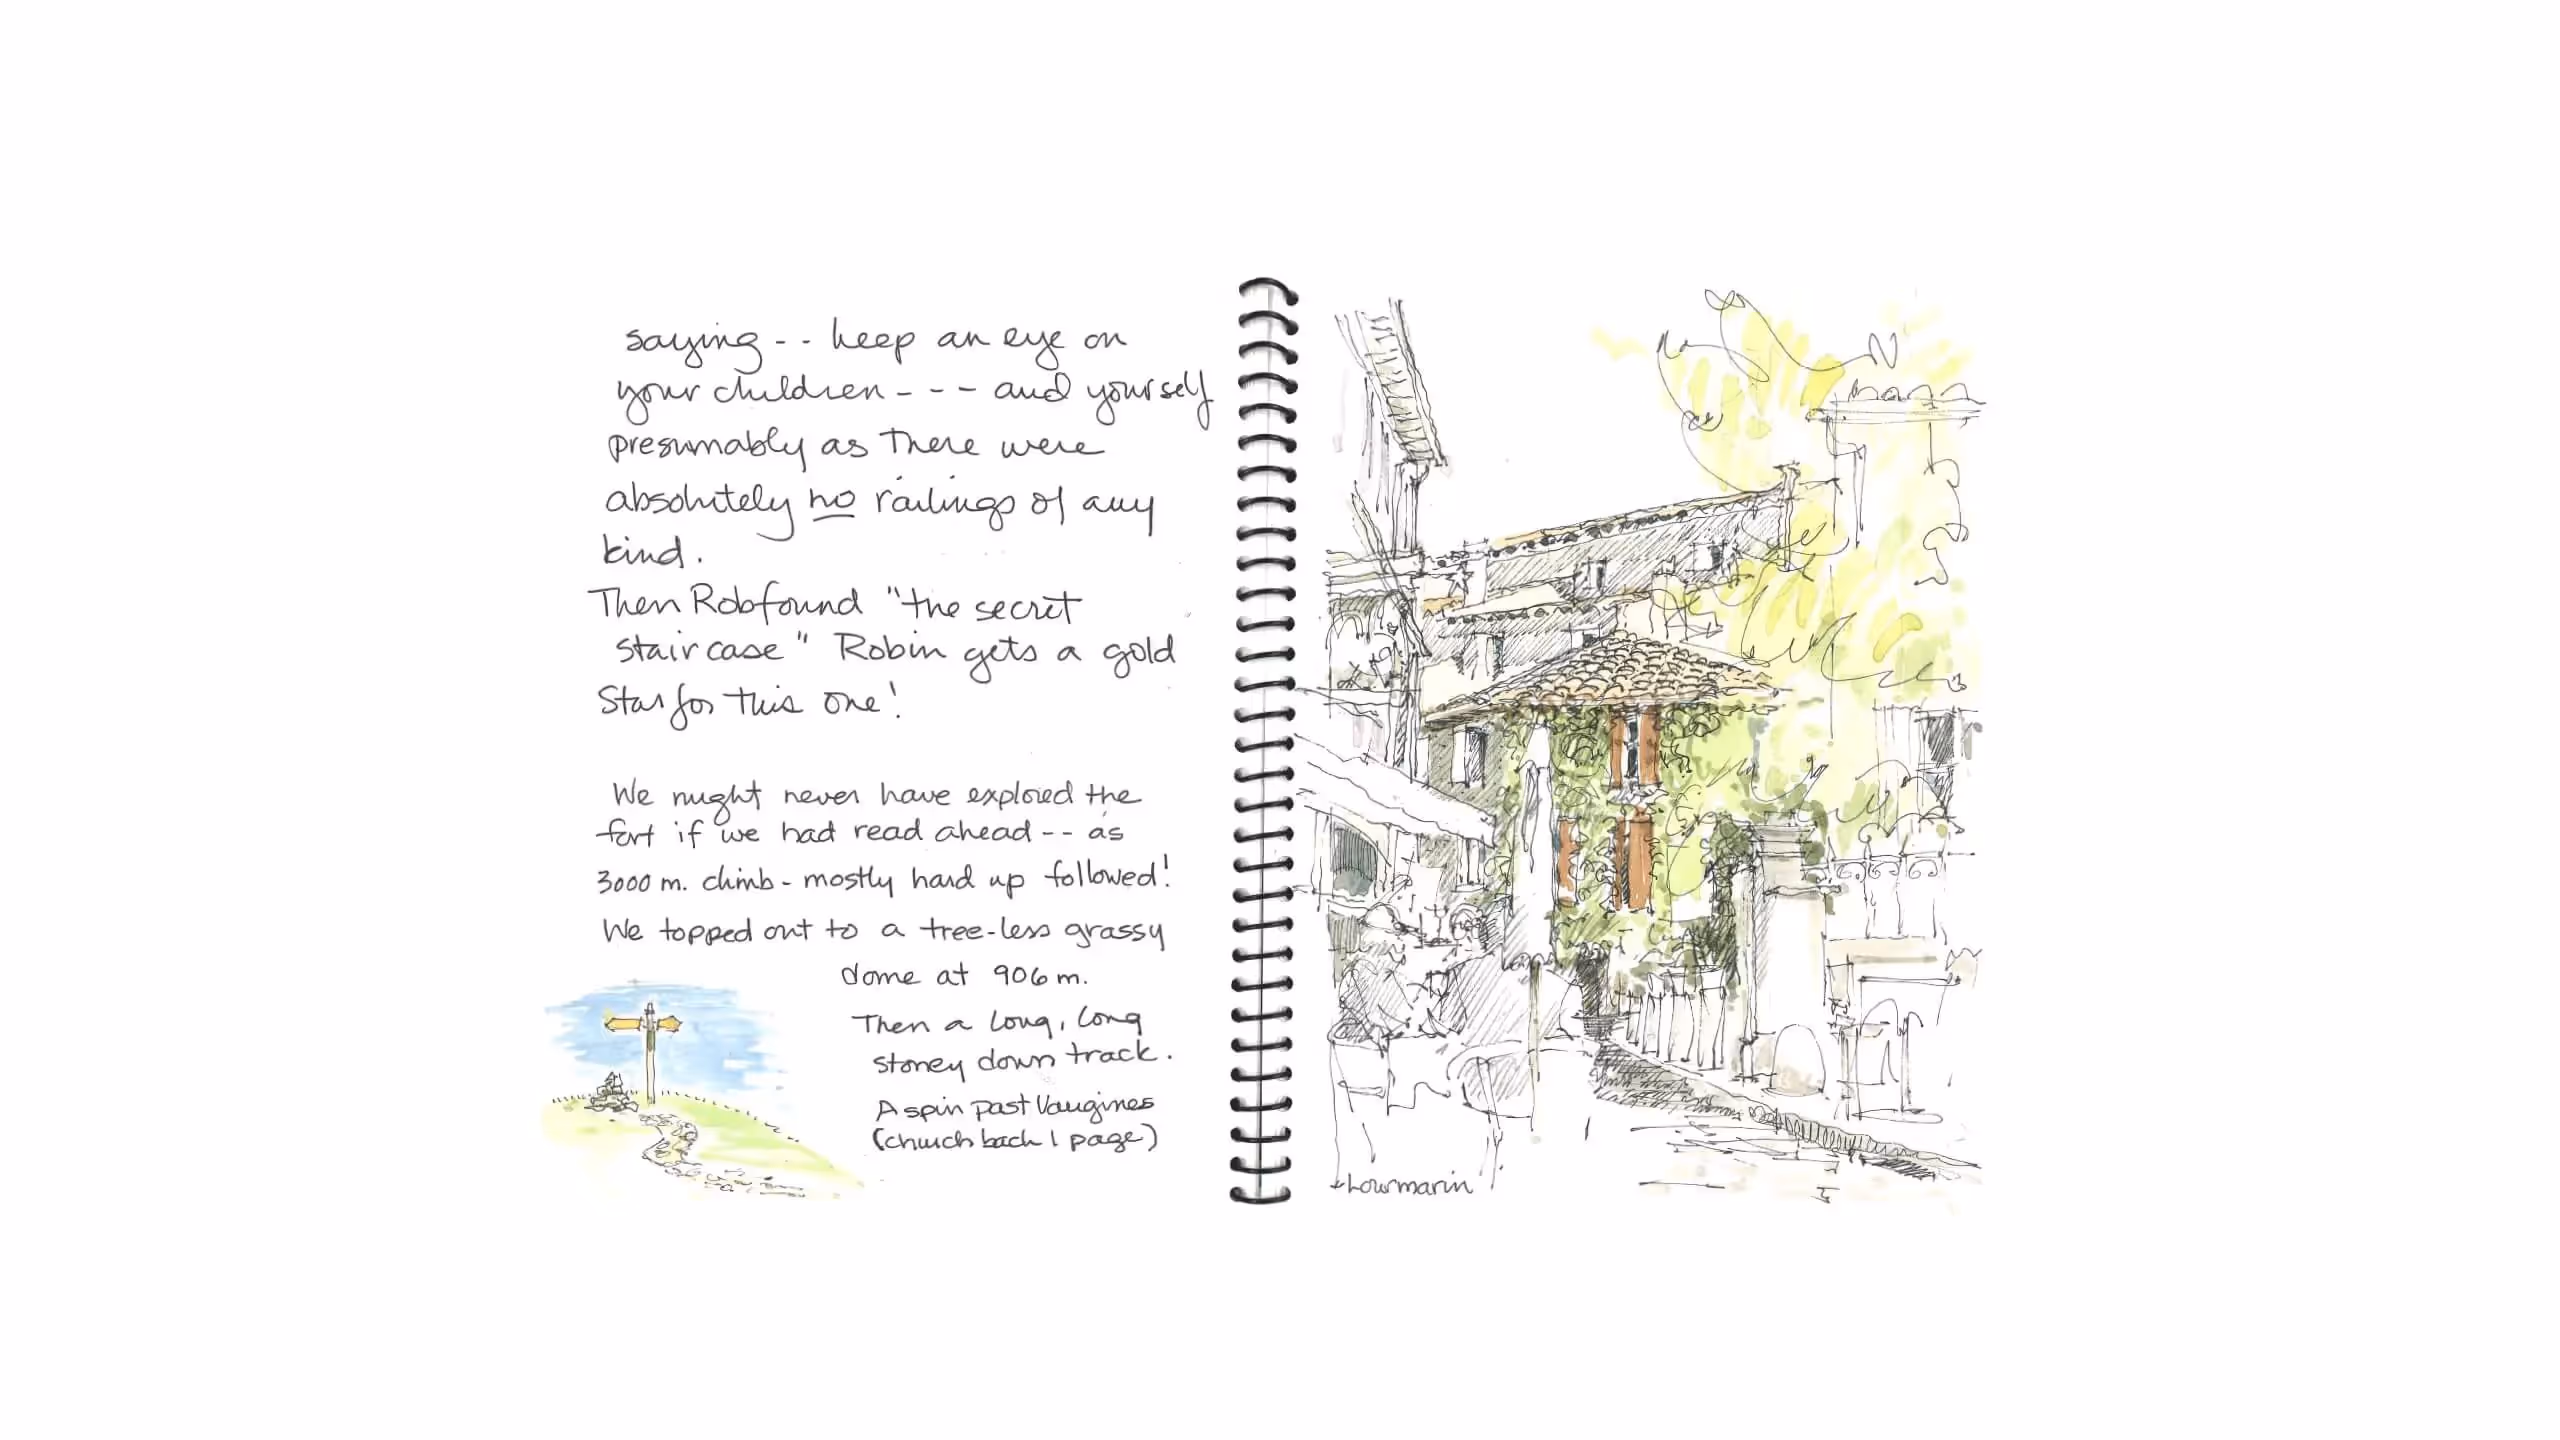 saying -- keep an eye on
your children --- and yourself
presumably as there were
absolutely no railings of any
kind.
Then Rob found "the secret
staircase" Robin gets a gold
Star for this one!
We might never have explored the
fort if we had read ahead -- as
3000 m. climb - mostly hard up followed!
We topped out to a tree-less grassy
dome at 906 m.
Then a long, long
stoney down track.
A spin past Vaugines
(church back 1 page)
Lourmarin